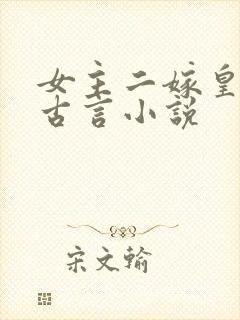 女主二嫁皇
古言小说
宋文翰